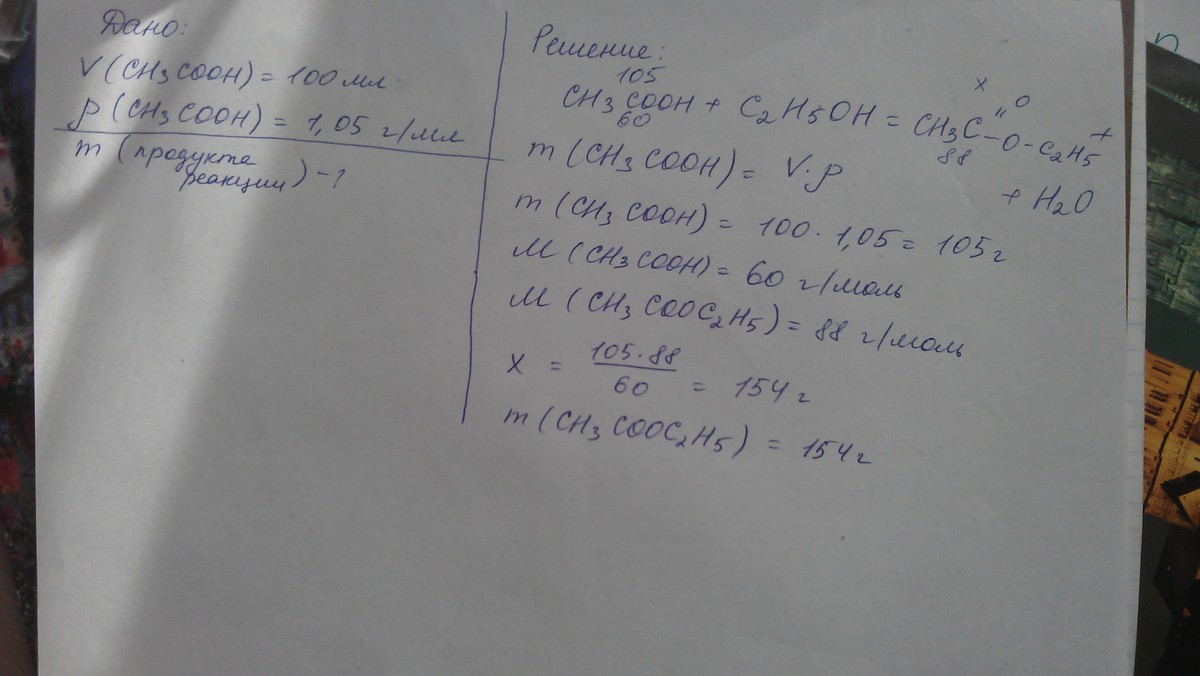 Дано:
V (CH3COOH) = 100 мл
ρ (CH3COOH) = 1,05 г/мл
m (продукта
реакции) - ?
Решение:
105 x
CH3COOH + C2H5OH = CH3C=O-O-C2H5 +
60 88
+ H2O
m (CH3COOH) = V·ρ
m (CH3COOH) = 100 · 1,05 = 105 г
M (CH3COOH) = 60 г/моль
M (CH3COOC2H5) = 88 г/моль
x = 105·88/60 = 154 г
m (CH3COOC2H5) = 154 г